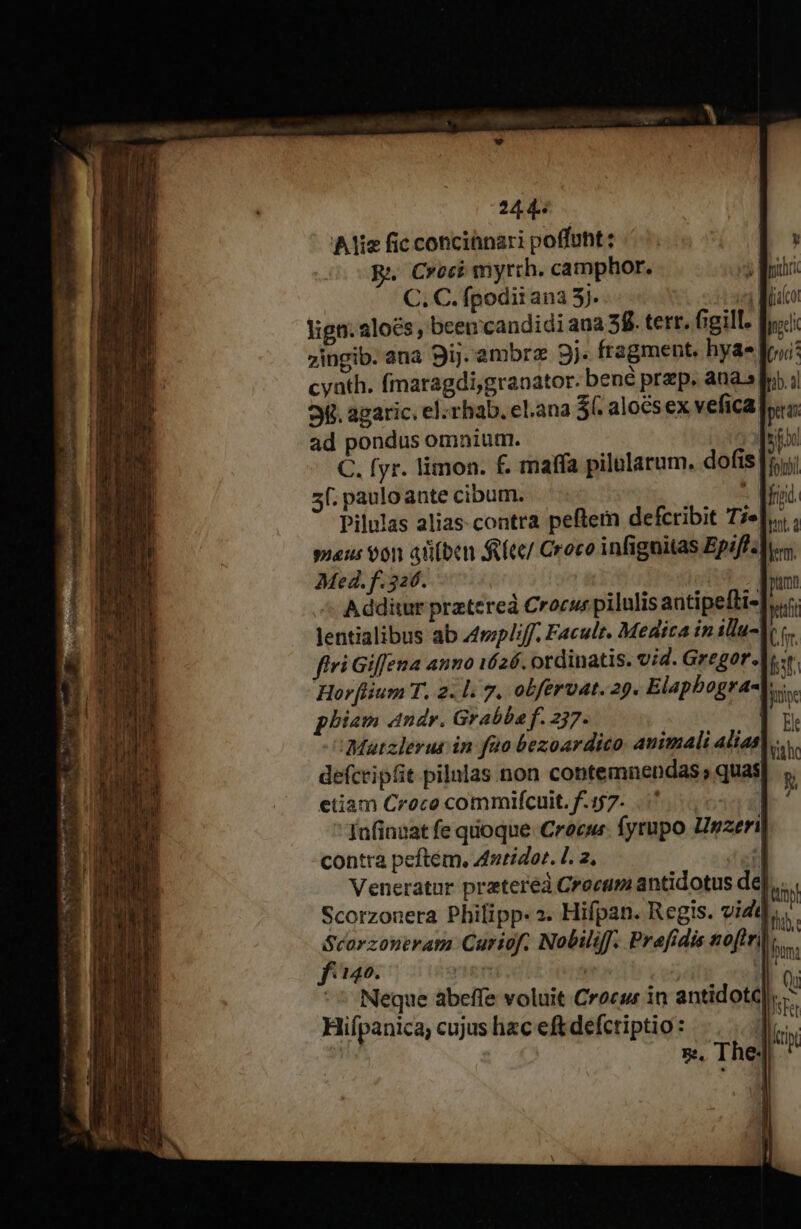 244.
Aliæ ſic concinnari poſſunt:
℞. Croci myrrh. camphor.
C. C. ſpodii ana ʒj.
lign. aloës, been candidi ana ʒß. terr. ſigill.
zingib. ana ℈ij. ambræ ℈j. fragment. hya-
cynth. ſmaragdi, granator. benè præp. ana
℈ß. agaric. el. rhab. el. ana ʒſ. aloës ex veſica
ad pondus omnium.
C. ſyr. limon. f. maſſa pilularum. doſis
ʒſ. paulo ante cibum.
Pilulas alias contra peſtem deſcribit Tie-
meus von güſben Klee/ Croco inſignitas Epiſt.
Med. f. 326.
Additur prætereà Crocus pilulis antipeſti-
lentialibus ab Ampliſſ. Facult. Medica in illu-
ſtri Giſſena anno 1626. ordinatis. vid. Gregor.
Horſtium T. 2. l. 7. obſervat. 29. Elaphogra-
phiam Andr. Grabbe f. 237.
Matzlerus in ſuo bezoardico animali alias
deſcripſit pilulas non contemnendas, quas
etiam Croco commiſcuit. f. 157.
Inſinuat ſe quoque Crocus ſyrupo Unzeri
contra peſtem, Antidot. l. 2,
Veneratur prætereà Crocum antidotus de
Scorzonera Philipp. 2. Hiſpan. Regis. vide
Scorzoneram Curioſ. Nobiliſſ. Præſidis noſtri
f. 140.
Neque abeſſe voluit Crocus in antidoto
Hiſpanica, cujus hæc eſt deſcriptio:
℞. The-